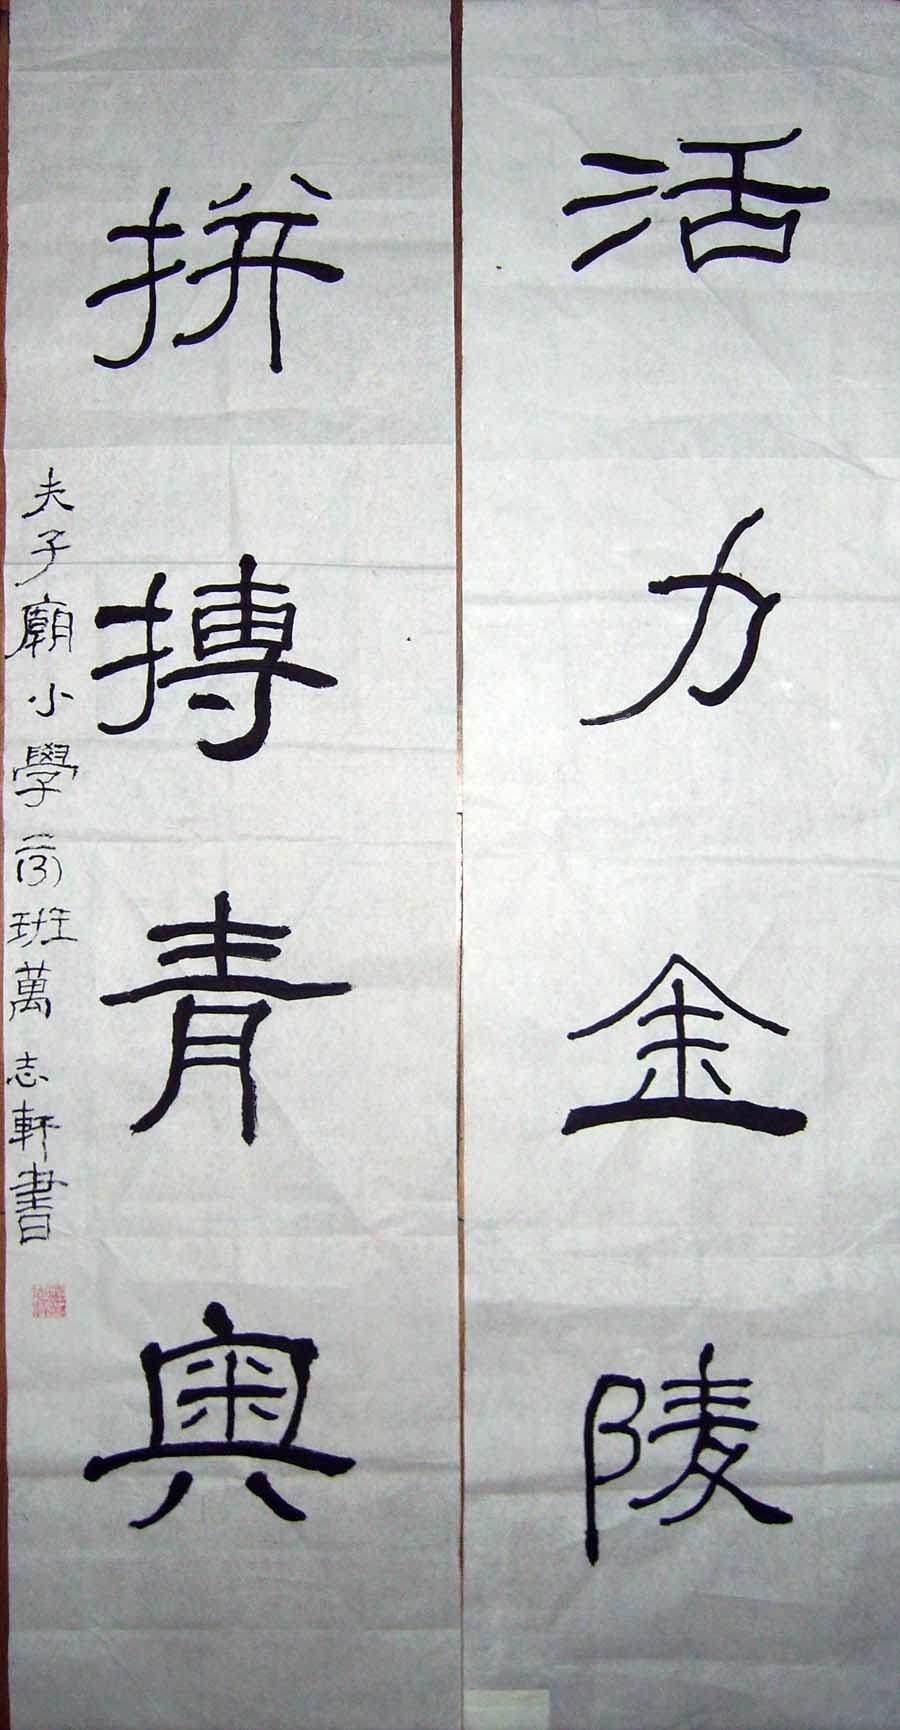 活力金陵
拼搏青奥
夫子廟小學二(3)班萬志軒書